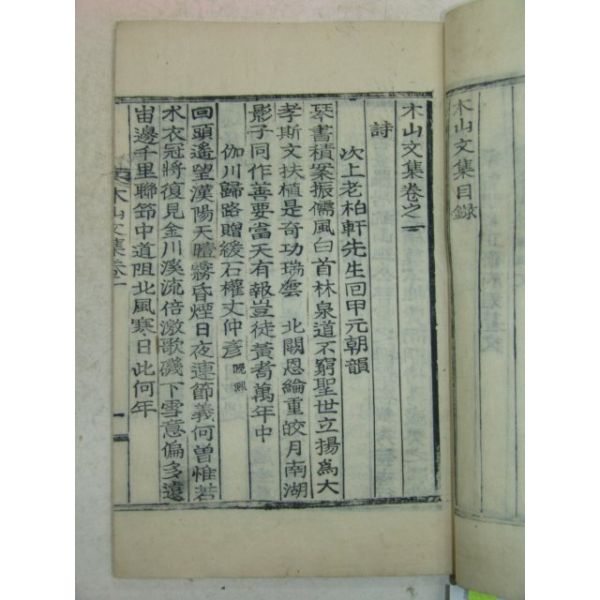 木山文集目錄
木山文集卷之一
詩
次上老柏軒先生回甲元朝韻
琴書積案振儒風白首林泉道不窮聖世立揚爲大
孝斯文扶植是奇功瑞雲 北闕恩綸重皎月南湖
影子同作善要當天有報豈徒黃耈萬年中
伽川歸路贈緩石權丈仲彥 晩熙
回頭遙望漢陽天曀霧昏煙日夜連節義何曾惟若
水衣冠將復見金川溪流倍激歌磯下雪意偏多遠
宙邊千里聯中道阻北風寒日此何年
木山文集卷一
一